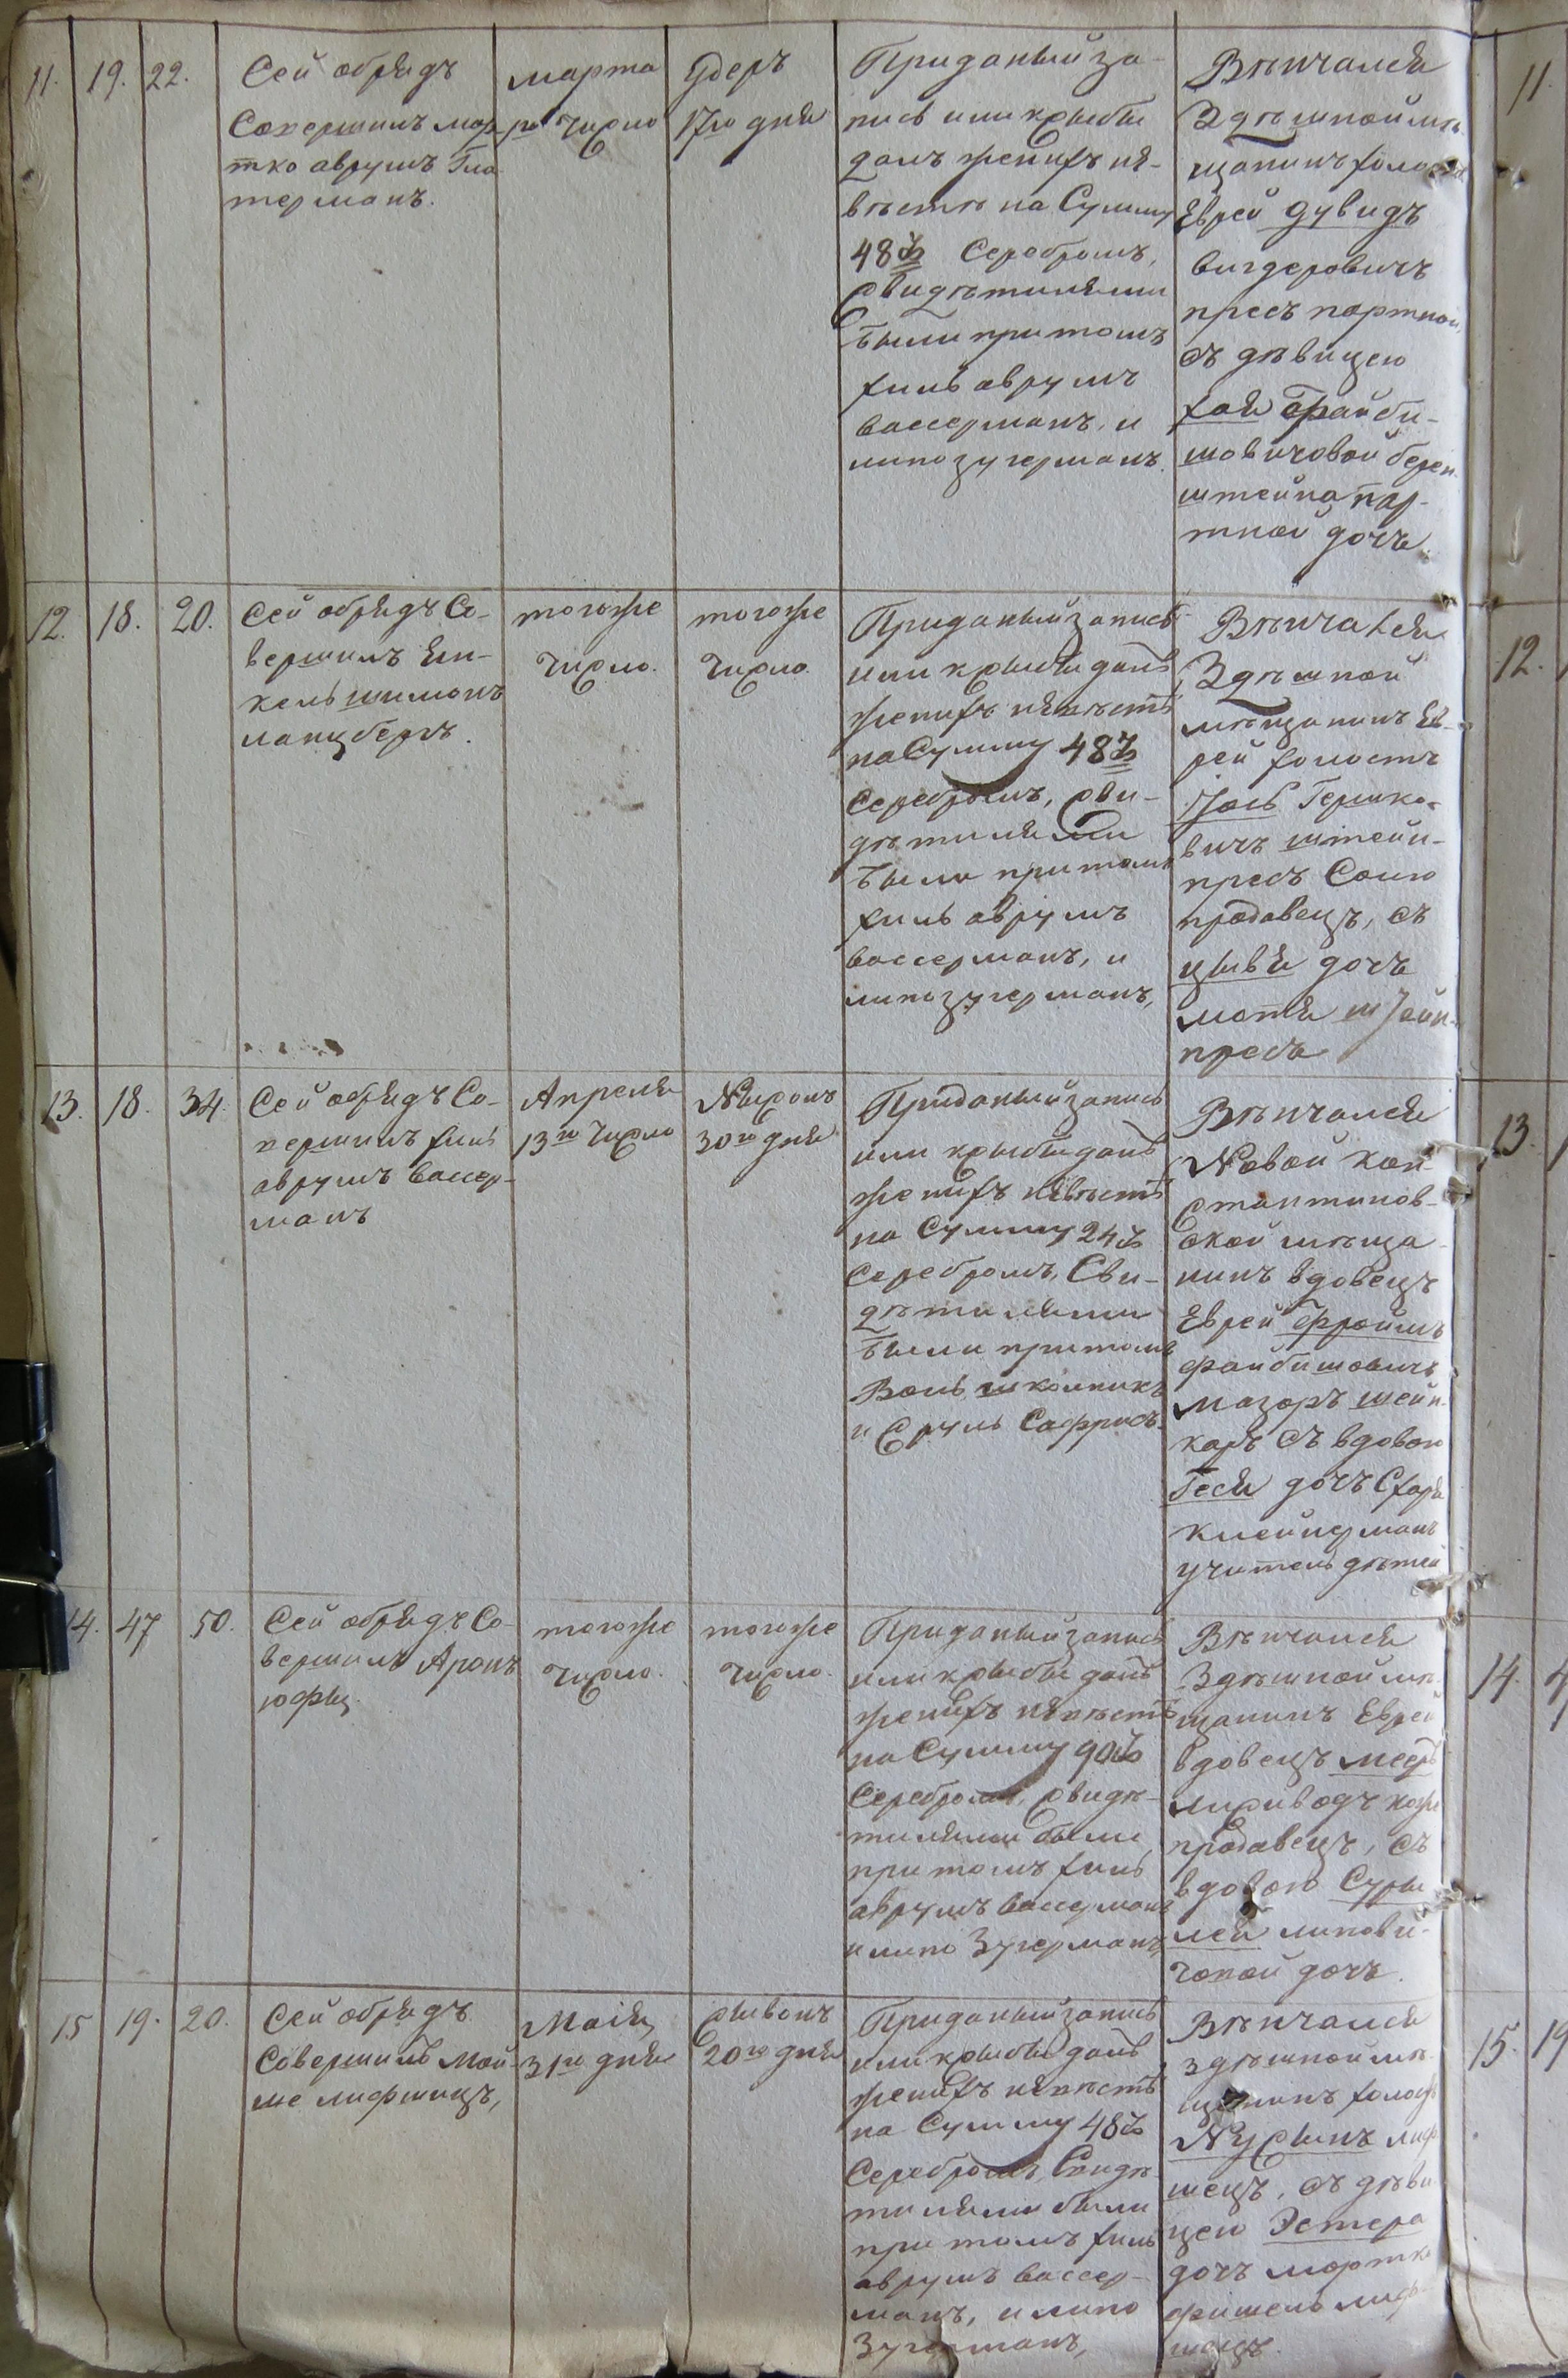 11. 19. 22.
Сей обрядъ
Совершилъ мор-
тко аврумъ Гла-
терманъ.
марта
1го число
Адеръ
17го дня
Приданый за-
пись или крыбы
далъ женихъ не-
вѣстѣ на Сумму
48 Серебромъ,
Свидѣтилями
были притомъ
хиль аврумъ
вассерманъ, и
липо зугерманъ.
Вѣнчался
Здѣшной мѣ-
щанинъ холостъ
Еврей дувидъ
вигдеровичъ
пресъ портной,
съ дѣвицею
хая Файби-
шовичовой берен-
штейна пор-
тной дочъ.
12. 18. 20.
Сей обрядъ Со-
вершилъ Ян-
кель шимонъ
ланцбергъ.
тогоже
число.
тогоже
число.
Приданый запись
или крыбы далъ
женихъ невѣстѣ
на Сумму 48
Серебромъ, сви-
дѣтилями
были притомъ
хиль аврумъ
вассерманъ, и
липо зугерманъ,
Вѣнчался
Здѣшной
мѣщанинъ Ев-
рей холостъ
Іось Гершко-
вичъ штейн-
пресъ Солю
продавецъ, съ
цывя дочъ
мотя штейн-
пресъ
13. 18. 34.
Сей обрядъ Со-
вершилъ хиль
аврумъ вассер-
манъ
Апреля
13го число
Нисонъ
30го дня
Приданый запись
или крыбы далъ
женихъ невѣстѣ
на Сумму 24
Серебромъ, Сви-
дѣтилями
были притомъ
Воль школникъ
и Сруль Сафрисъ.
Вѣнчался
Новой Кон-
стантинов-
ской мѣща-
нинъ вдовецъ
Еврей Фроимъ
файбишовичъ
мазоръ шейн-
каръ съ вдовою
Геся дочъ Схаря
клейнерманъ
учитель дѣтей
14. 47 50.
Сей обрядъ Со-
вершилъ Аронъ
юфы.
тогоже
число.
тогоже
число.
Приданый запись
или крыбы далъ
женихъ невѣстѣ
на Сумму 90
Серебромъ, свидѣ-
тилями были
притомъ хиль
аврумъ вассерманъ
и липо Зугерманъ,
Вѣнчался
Здѣшной мѣ-
щанинъ Еврей
вдовецъ мееръ
мисиводъ коже
продавецъ, съ
вдовою Суры
леи липови-
човой дочъ.
15 19. 20.
Сей обрядъ
Совершилъ мой-
ше лифшицъ,
Маія
31го дня
сывонъ
20го дня
Приданый запись
или крыбы далъ
женихъ невѣстѣ
на Сумму 48
Серебромъ, Свидѣ-
тилями были
притомъ хиль
аврумъ вассер-
манъ, и липо
Зугерманъ,
Вѣнчался
здѣшной мѣ-
щанинъ холостъ
Нусынъ лиф-
шецъ, съ дѣви-
цею Эстера
дочъ мортко
фишель лиф-
шецъ.
11.
12.
13.
14.
15. 19